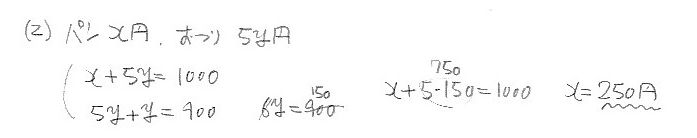 (2) パン x円、おつり 5y円
x+5y=1000
5y+y=900 6y=900 150
x+5·150=1000 750
x=250円